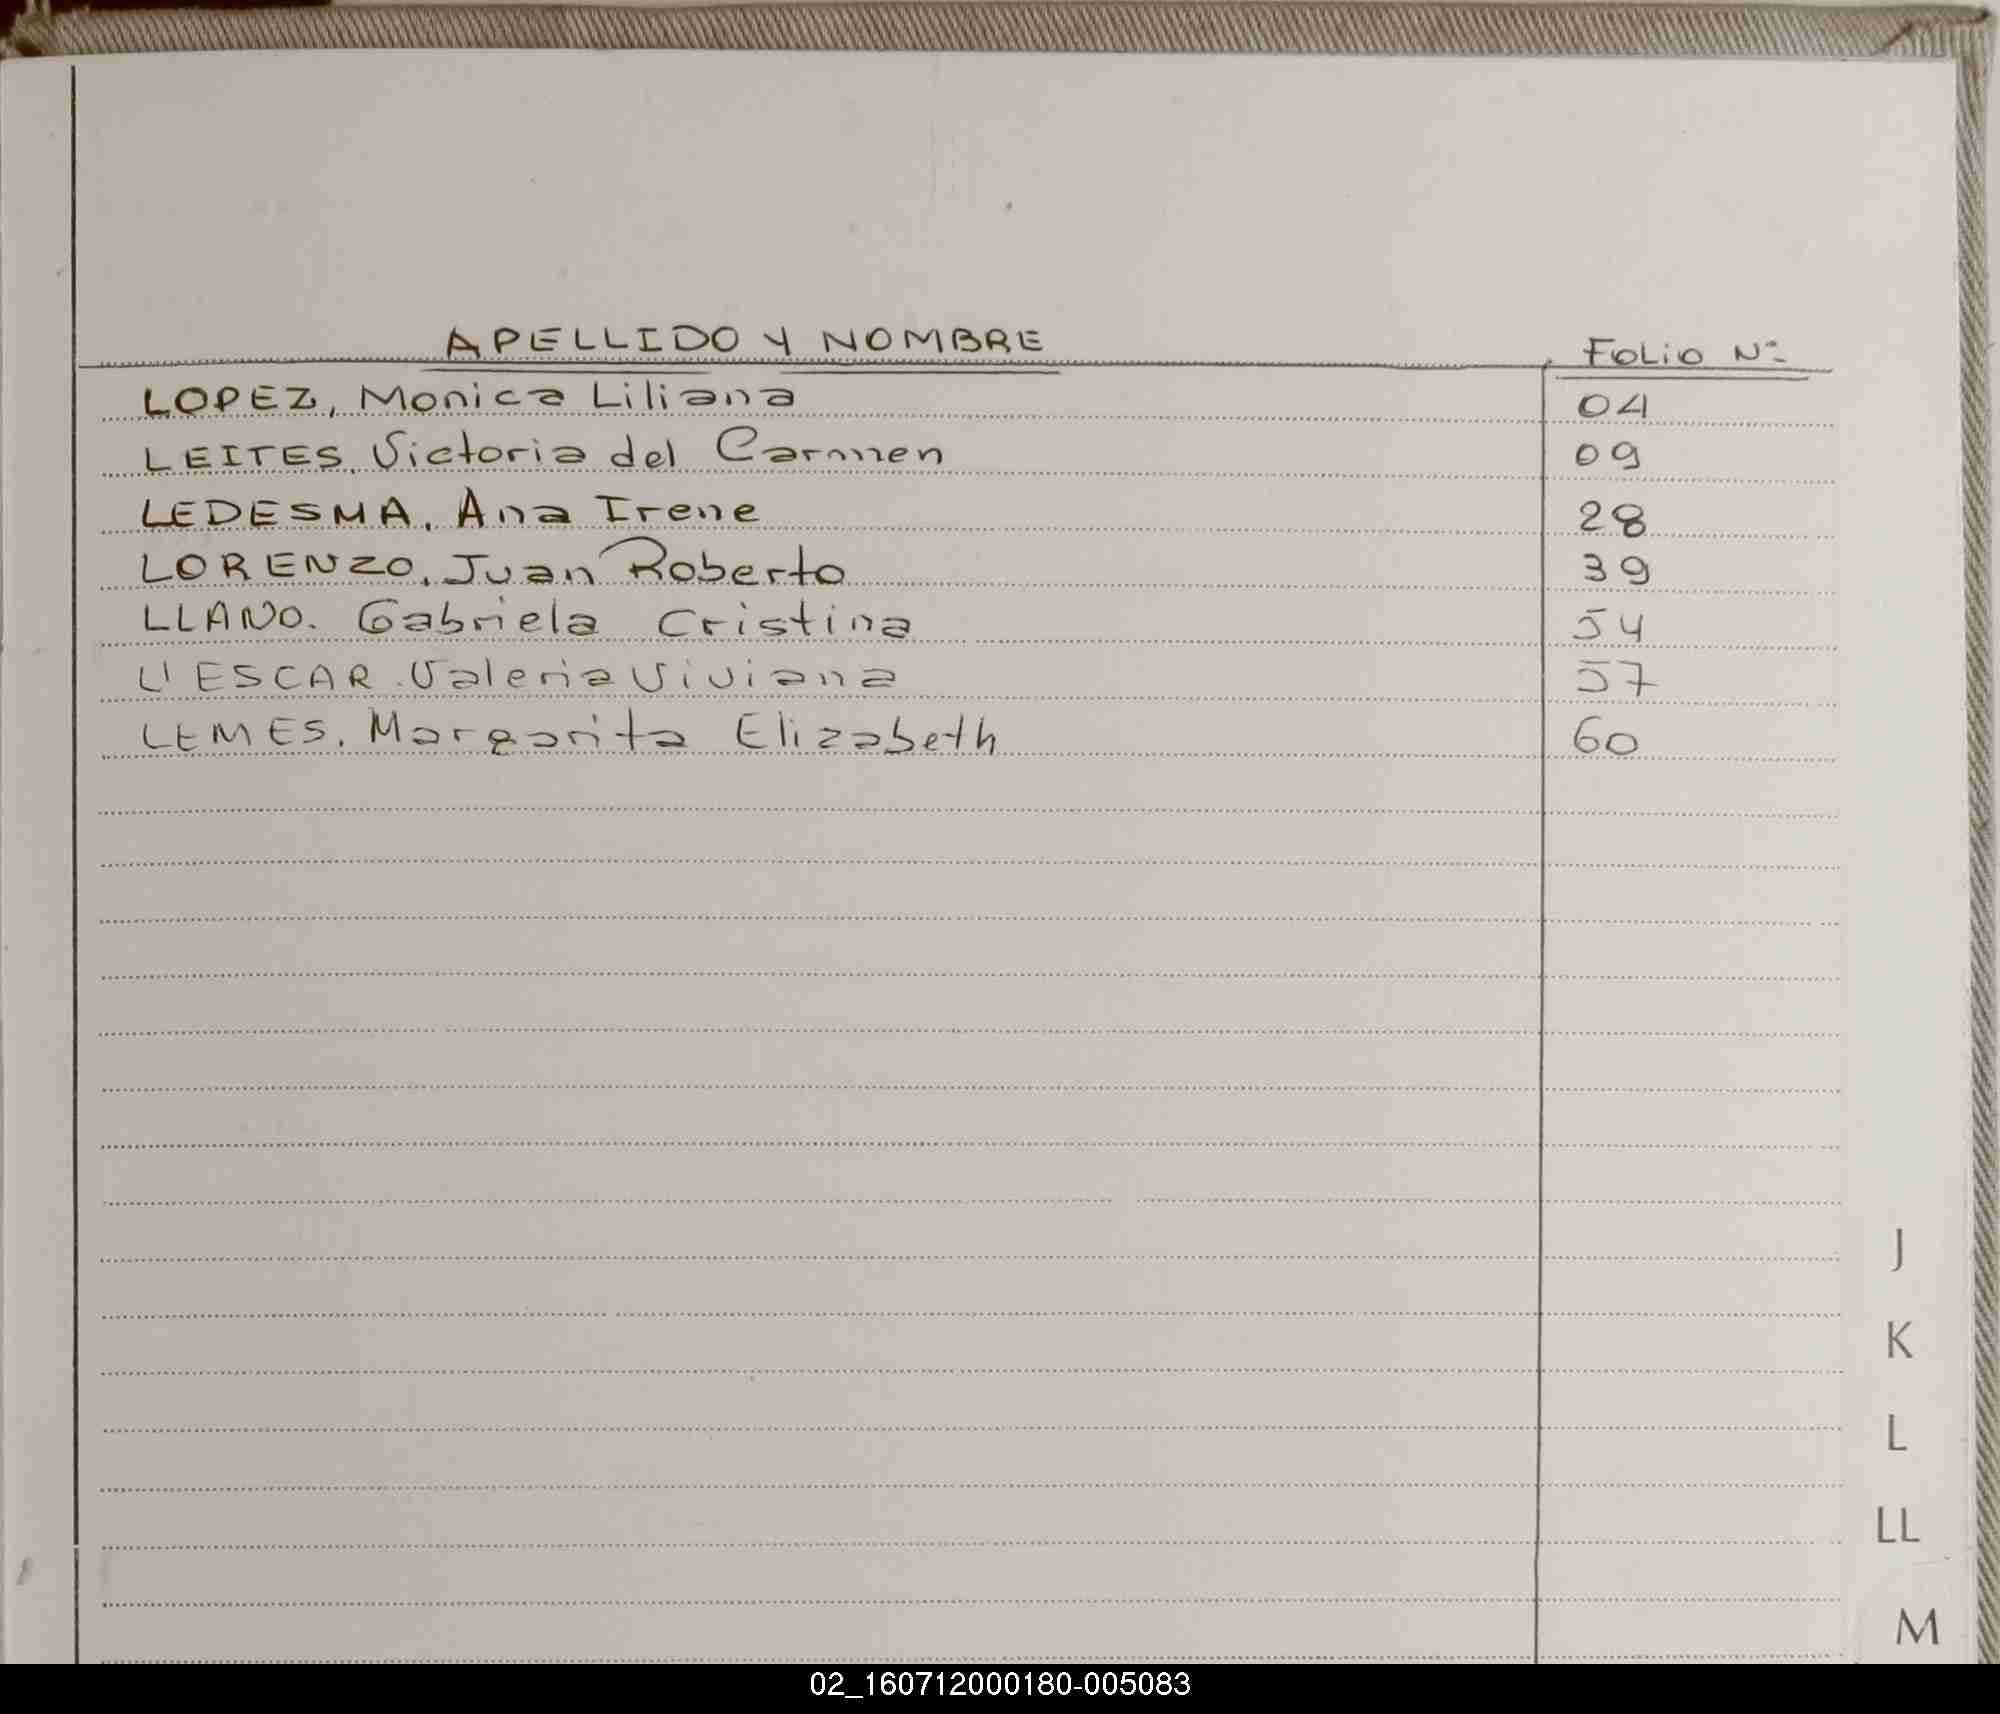 APELLIDO Y NOMBRE FOLIO Nº
LOPEZ, Monica Liliana 04
LEITES, Victoria del Carmen 09
LEDESMA, Ana Irene 28
LORENZO, Juan Roberto 39
LLANO. Gabriela Cristina 54
L'ESCAR. Valeria Viviana 57
LEMES, Margarita Elizabeth 60
J
K
L
LL
M
02_160712000180-005083